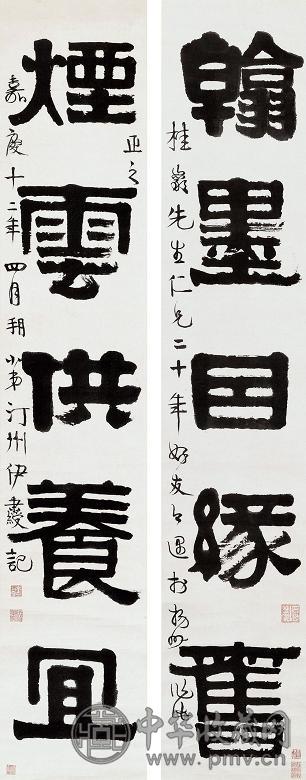 翰墨因緣舊
桂翁先生仁兄二十年好友今遇於揚州
正之
煙雲供養宜
嘉慶十二年四月朔小弟汀州伊秉綬記
中华收藏网
www.pmv.cn